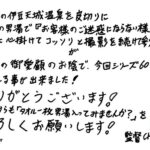 の伊豆天城温泉を皮切りに
の男湯で『お客様のご迷惑とならない様
に心掛けてコッソリと撮影を続けて
の御愛顧のお陰で、今回シリーズ60
る事が出来ました!
りがとうございます!
も『タオル一枚男湯入ってみませんか?』を
ろしくお願いします!
監督